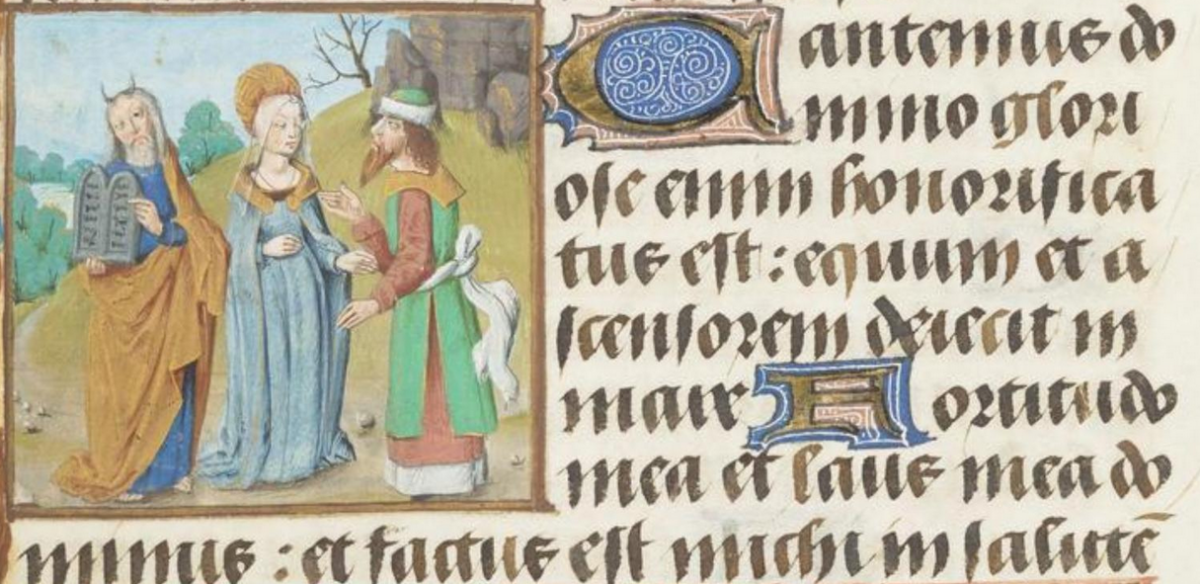 Cantemus do
mino glori
ose enim honorifica
tus est : equum et a
scensorem deiecit in
mare Fortitudo
mea et laus mea do
minus : et factus est michi in salutē